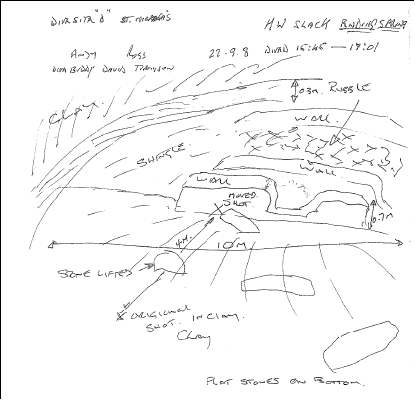 DIVE SITE "D" ST. NICHOLAS
H W SLACK
ANDY ROSS 22-9-8 DIVED 15:45 — 17:01
DIVE BUDDY DAVID THOMSON
CLAY.
0.3M. RUBBLE
WALL
SHINGLE
WALL
WALL
MOVED
SHOT.
0.7M
4M.
10M
STONE LIFTED
X ORIGIONAL
SHOT. IN CLAY.
CLAY
FLAT STONES ON BOTTOM.